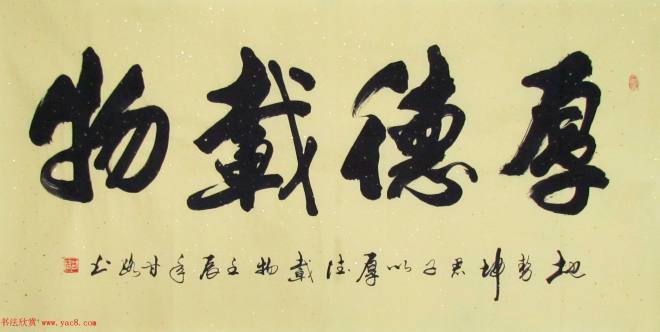 厚德載物
地勢坤君子以厚德載物壬辰年甘
书法欣赏·www.yac8.com